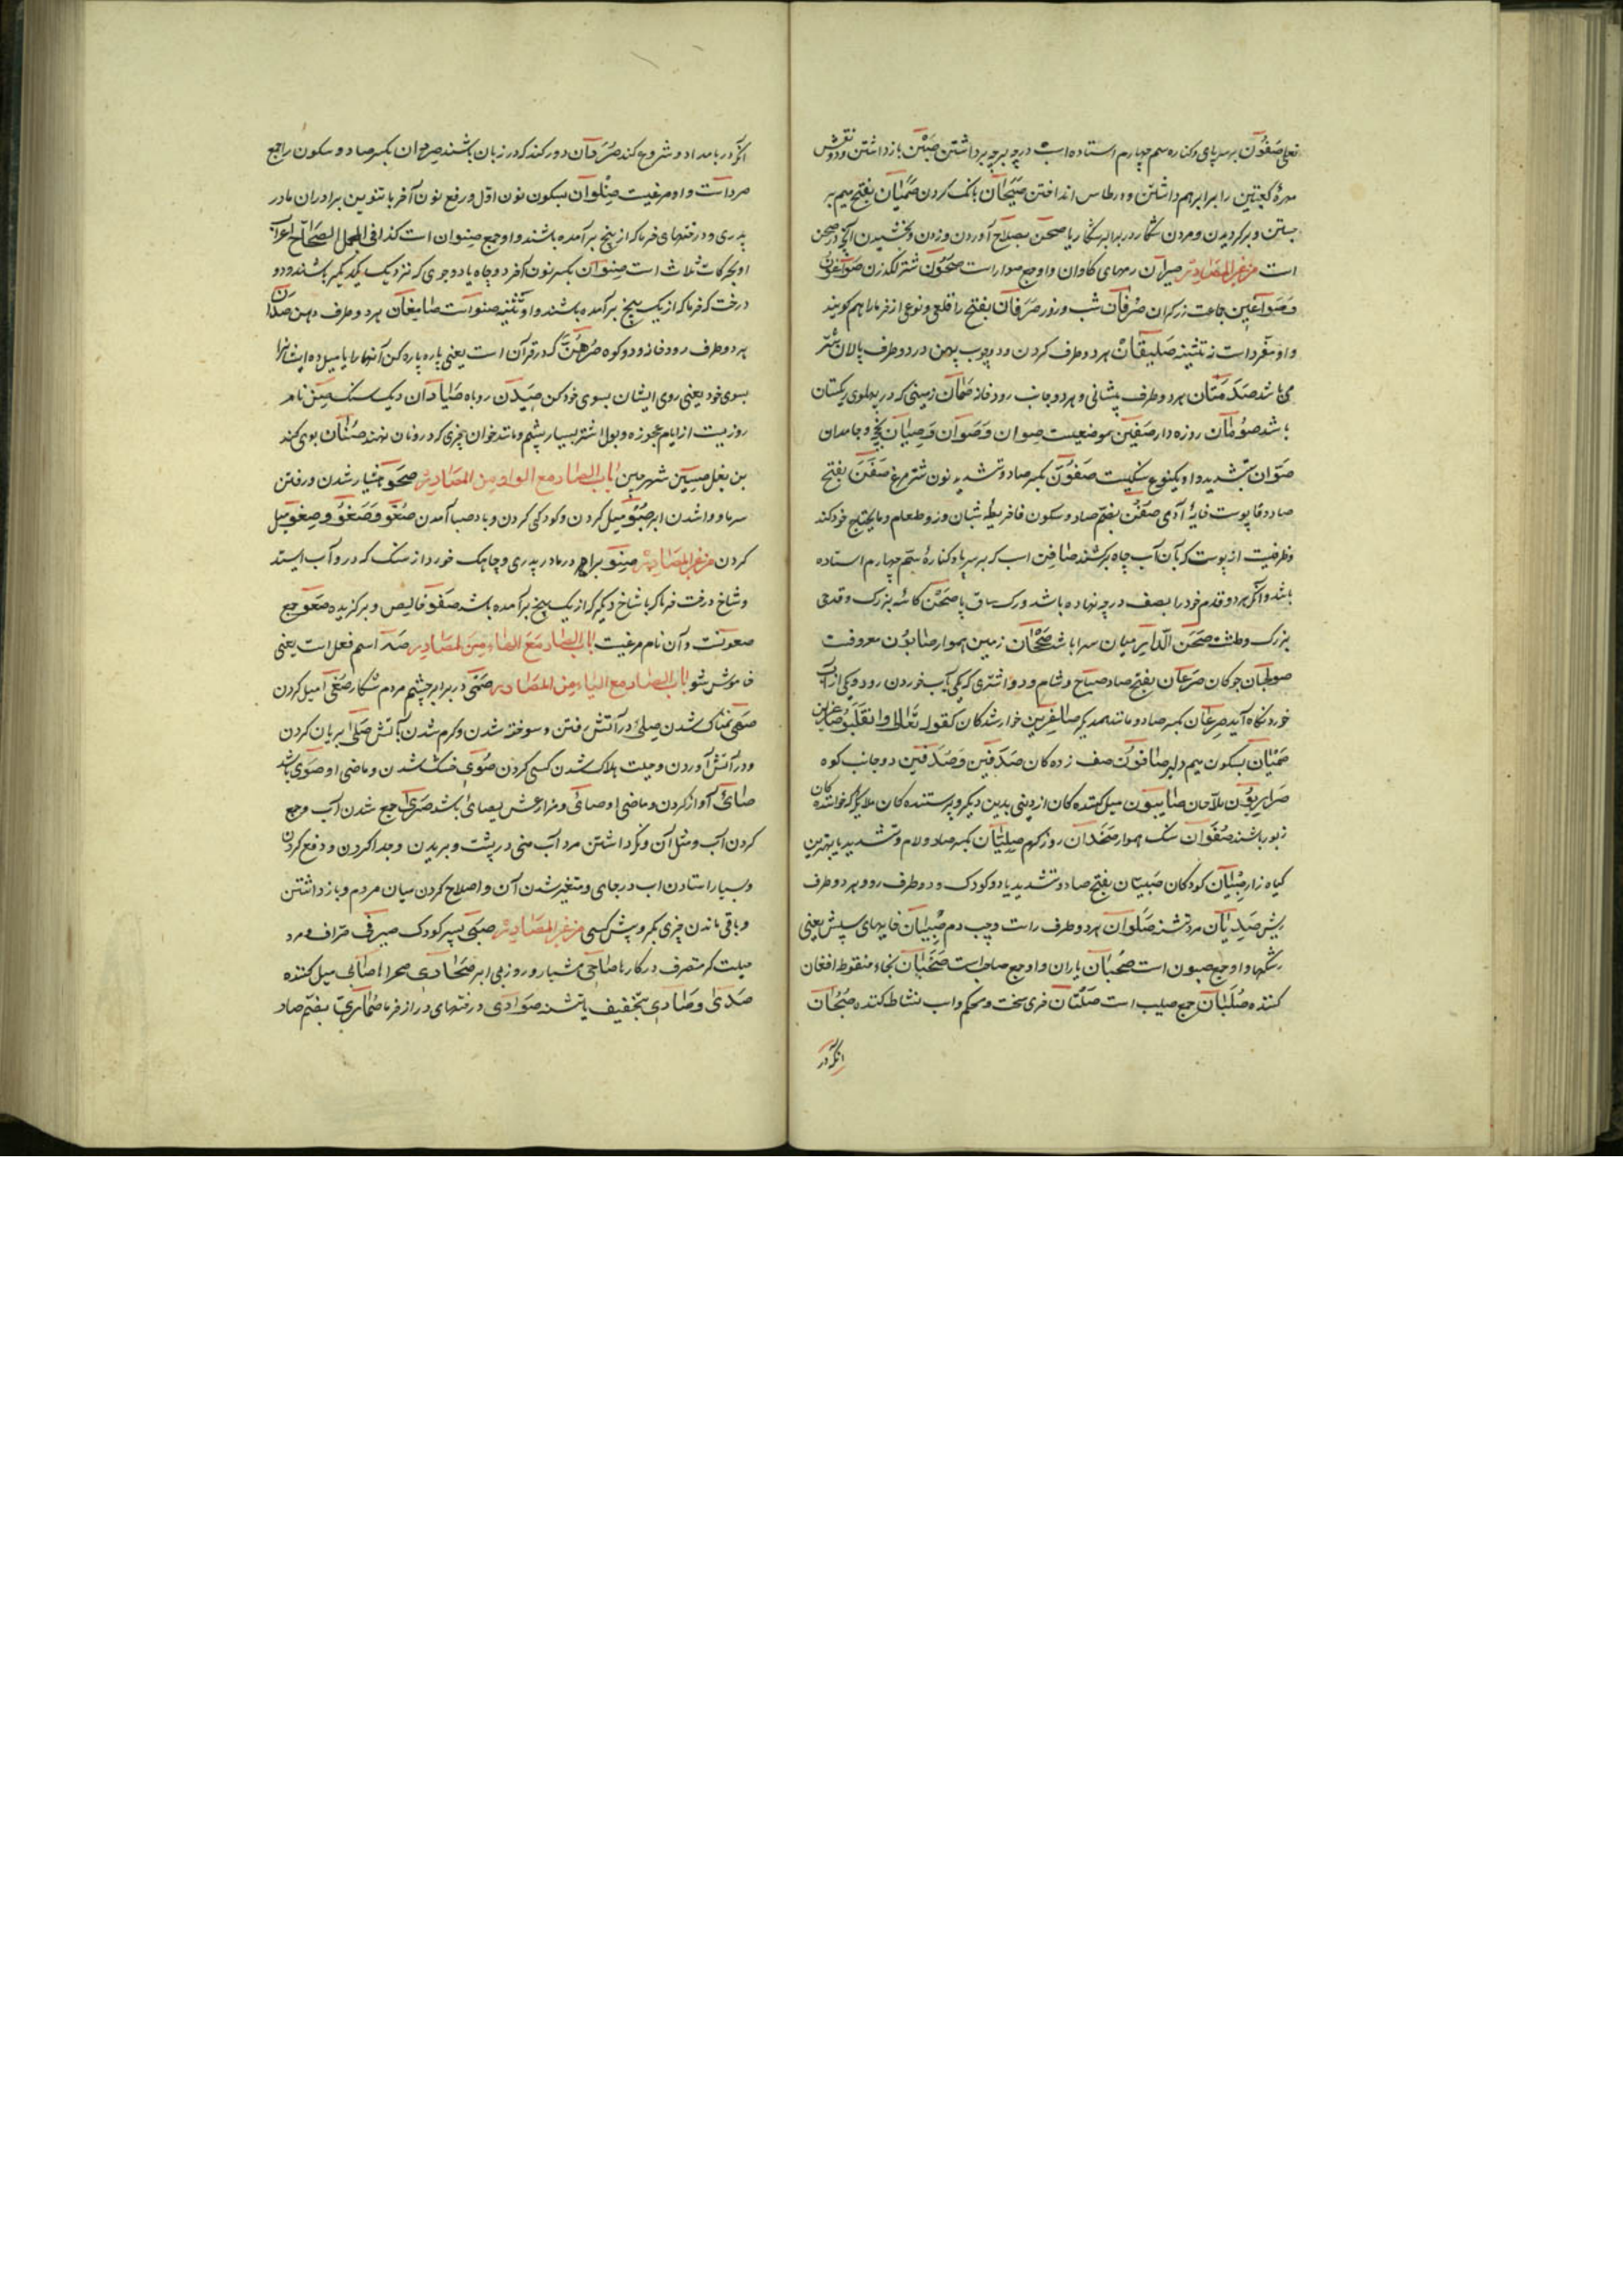 فعلی صَفُوْن بر سه پای و کناره سم چهارم استاده اسب در چه بر چه برداشتن صَبْن بازداشتن و دو نقش
مهرهٔ کعبتین را برابر هم داشتن و در طاس انداختن صَیْحَان بانک کردن صَمَیَان بفتح میم بر
جستن و برگردیدن و مردن شکار در برابر شکاریا صَحن بصلاح آوردن و زدن و بخشیدن آنچه در صحن
است من غیر المصادر صیران رمهای کاوان واو جمع صوار است صَحُون شتر لکدزن صَوّاغُون
و صَوّاغین جماعت زرکران صَرْفَان شب و روز صَرَفَان بفتح را قلعی و نوعی از خرما را هم کویند
واو مفرد است نه تثنیه صَلیفَان هر دو طرف کردن و دو چوب پهن در دو طرف پالان شتر
می باشد صَدْمَتَان هر دو طرف پیشانی و هر دو جانب رودخانه صَمّان زمینی که در پهلوی ریکستان
باشد صَوْمَان روزه دار صفّین موضعیست صِوَان و صَوَان و صِیَان تخج و جامدان
صَوّان بتشدید واو یکنوع سنکیست صفوَنّ بکسر صاد و تشدید نون شتر مرغ صَفَن بفتح
صاد و فا پوست خایهٔ آدمی صُفْن بضم صاد و سکون فا خریطهٔ شبان و زو طعام و مایحتاج خود کند
و ظرفیست از پوست که بآن آب چاه برکشند صافِن اسب که بر سه پا و کنارهٔ سم چهارم استاده
باشد و آنکه هر دو قدم خود را بصف در چه نهاده باشد و رک ساق پا صَحْن کاسهٔ بزرک و قدحی
بزرک و طشت صَحن الدّار میان سرا باشد صَحْنَان زمین هموار صابُون معروفست
صولجان چوکان صَرْعَان بفتح صاد صباح و شام و دو اشتری که یکی بآب خوردن رود و یکی از آب
خوردنکاه آید صِرعَان بکسر صاد و مانند همدیکر صاغِرین خوار شدکان کقوله تعالی وانقلبوا صاغرین
صَمْیَان بسکون میم دلیر صافون صف زده کان صَدَفَین و صُدُفَین دو جانب کوه
صَراریُون ملاحان صابئون میل کننده کان از دینی بدین دیکر و پرستنده کان ملایکه که خواننده کان
زبور باشند صَفْوَان سنک هموار صَخَدَان روز کرم صِلّیان بکسر صاد و لام و تشدید یا بهترین
کیاه زار صِبْیَان کودکان صَبیّان بفتح صاد و تشدید یا دو کودک و دو طرف رو و هر دو طرف
ریش صَدْیَان مرد تشنه صَلَوَان هر دو طرف راست و چپ دم صِئبان خایهای سپش یعنی
رشکها واو جمع صبون است صُحْبَان یاران واو جمع صاحب است صَخْبَان بخاء منقوط افغان
کننده صُلْبَان جمع صلیب است صَلَتَان خری سخت و محکم و اسب نشاط کننده صَبْحَان
آنکه در
آنکه در بامداد و شروع کند صُرَدان دو رک که در زبان باشند صِردان بکسر صاد و سکون را جمع
صرد است واو مرغیست صِنْوان بسکون نون اول و رفع نون آخر با تنوین برادران مادر
پدری و درختهای خرما که از بنج بر آمده باشند واو جمع صنوان است کذا فی المجمل الصحاح اعراب
او بحرکات ثلاث است صِنوان بکسر نون آخر دو چاه یا دو جوی که نزدیک یکدیکر باشند و دو
درخت که خرما که از یک بیخ بر آمده باشند واو تثنیه صنو است صامِغان هر دو طرف دهن صَدّان
هر دو طرف رودخانه و دو کوه صُرْهُنّ که در قرآن است یعنی پاره پاره کن آنها را یا میل ده ایشانرا
بسوی خود یعنی روی ایشان بسوی خود کن صَیْدَن روباه صَیَادَان دیک سنک صِنّ نام
روزیست از ایام عجوزه و بول اشتر بسیار پشم و مانند خوان چیزی که در و نان نهند صُنَان بوی کند
بن بغل صِین شهر چین باب الصاد مع الواو من المصادر صَحْو هشیار شدن و رفتن
سرما و واشدن ابر صَبْو میل کردن و کودکی کردن و باد صبا آمدن صَغْو و صُغُوّ و صِغْو میل
کردن من غیر المصادر صِنْو برادر مادر پدری و چاهک خورد از سنک که در و آب ایستد
و شاخ درخت خرما که با شاخ دیکر که از یک بیخ بر آمده باشد صَفْو خالص و برکزیده صَعْو جمع
صعوتست و آن نام مرغیست باب الصاد مع الهاء من المصادر صَهْ اسم فعل است یعنی
خاموش شو باب الصاد مع الیاء من المصادر صَمْی در برابر چشم مردن شکار صَغْی میل کردن
صَهْی نمناک شدن صِلیّ در آتش رفتن و سوخته شدن و کرم شدن بآتش صَلْی بریان کردن
و در آتش آوردن و حیلت هلاک شدن کسی کردن صُوِیّ خشک شدن و ماضی او صَوَی باشد
صَأی آواز کردن و ماضی او صأی و مضارعش یصأی باشد صَرْی جمع شدن آب و جمع
کردن آب و مثل آن و نکه داشتن مرد آب منی در پشت و بریدن و جدا کردن و دفع کردن
و بسیار استادن آب در جای و متغیر شدن آن و اصلاح کردن میان مردم و بازداشتن
و باقی ماندن چیزی بکرو پیش کسی من غیر المصادر صَبیّ پسر کودک صیرفی صراف و مرد
حیلت کر متصرف در کارها صاحی هشیار و روز بی ابر صَحَاری صحراها صابی میل کننده
صَدی و صادی بتخفیف یا تشنه صوادی درختهای دراز خرما صُماریّ بضم صاد